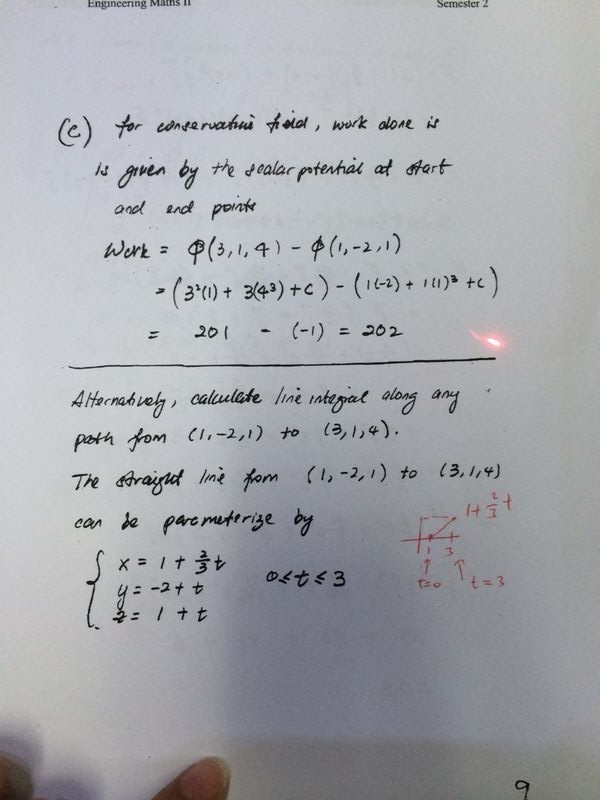 Engineering Maths II Semester 2
(c) for conservative field, work done is
is given by the scalar potential at start
and end points
Work = ϕ(3,1,4) - ϕ(1,-2,1)
= (3²(1) + 3(4³) + c) - (1(-2) + 1(1)³ + c)
= 201 - (-1) = 202
Alternatively, calculate line integral along any
path from (1,-2,1) to (3,1,4).
The straight line from (1,-2,1) to (3,1,4)
can be parameterize by
1 + 2/3 t
{ x = 1 + 2/3 t
y = -2 + t 0 ≤ t ≤ 3
z = 1 + t
1 3
t=0 t=3
9